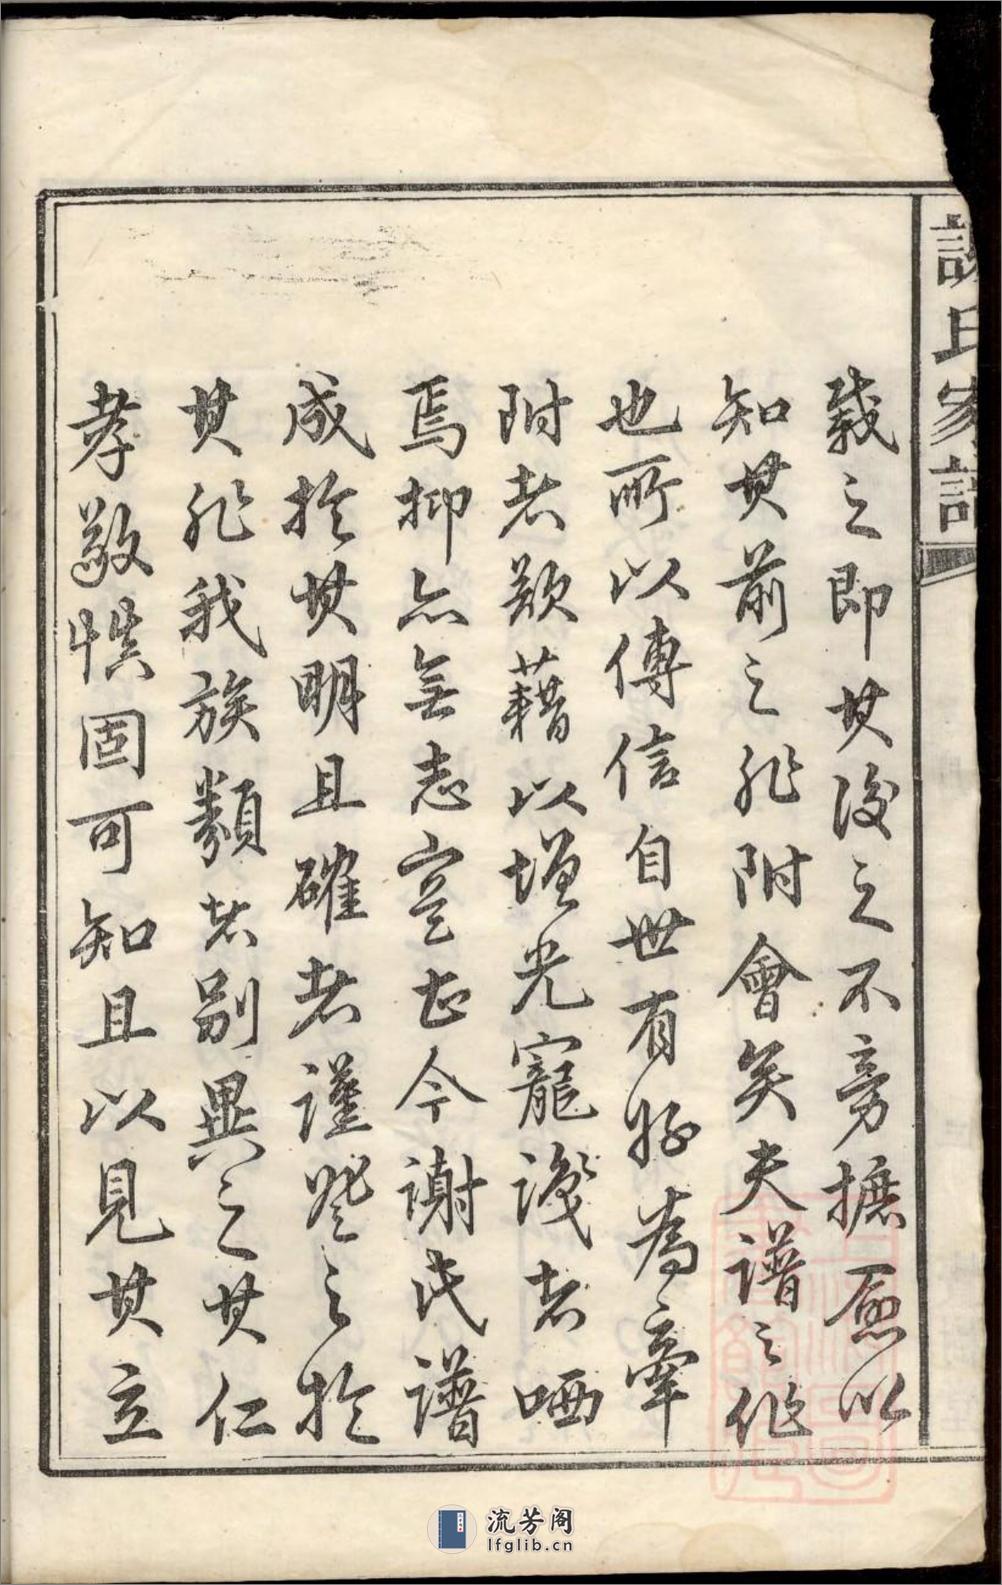 謝氏家譜
載之即其後之不旁摭愈以
知其前之非附會矣夫譜之作
也所以傳信自世有好為牽
附者欺藉以增光寵識者哂
焉抑亦無志寔甚今謝氏譜
成於其明且確者謹登之於
其非我族類者別異之其仁
孝敬慎固可知且以見其立
流芳阁
lfglib.cn